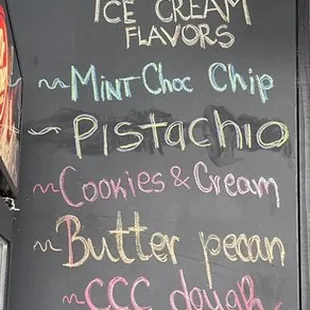 ICE CREAM
FLAVORS
~Mint Choc Chip
~Pistachio
~Cookies & Cream
~Butter pecan
~CCC dough